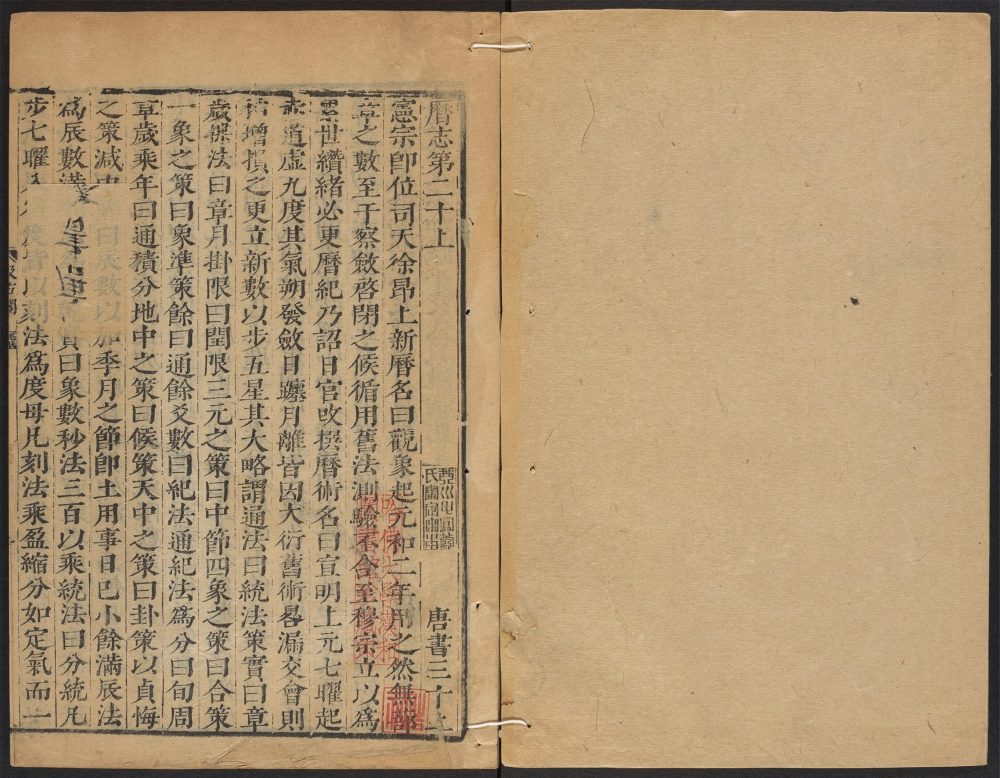 曆志第二十上
唐書三十上
憲宗卽位司天徐昂上新曆名曰觀象起元和二年用之然無蔀
章之數至于察斂啓閉之候循用舊法測驗不合至穆宗立以爲
累世纘緒必更曆紀乃詔日官改撰曆術名曰宣明上元七曜起
赤道虛九度其氣朔發斂日躔月離皆因大衍舊術晷漏交會則
稍增損之更立新數以步五星其大略謂通法曰統法策實曰章
歲揲法曰章月掛限曰閏限三元之策曰中節四象之策曰合策
一象之策曰象準策餘曰通餘爻數曰紀法通紀法爲分曰旬周
章歲乘年曰通積分地中之策曰候策天中之策曰卦策以貞悔
之策減中 曰辰數以加季月之節卽土用事日凡小餘滿辰法
爲辰數滿 實曰象數秒法三百以乘統法曰分統凡
步七曜入 以刻法爲度母凡刻法乘盈縮分如定氣而一